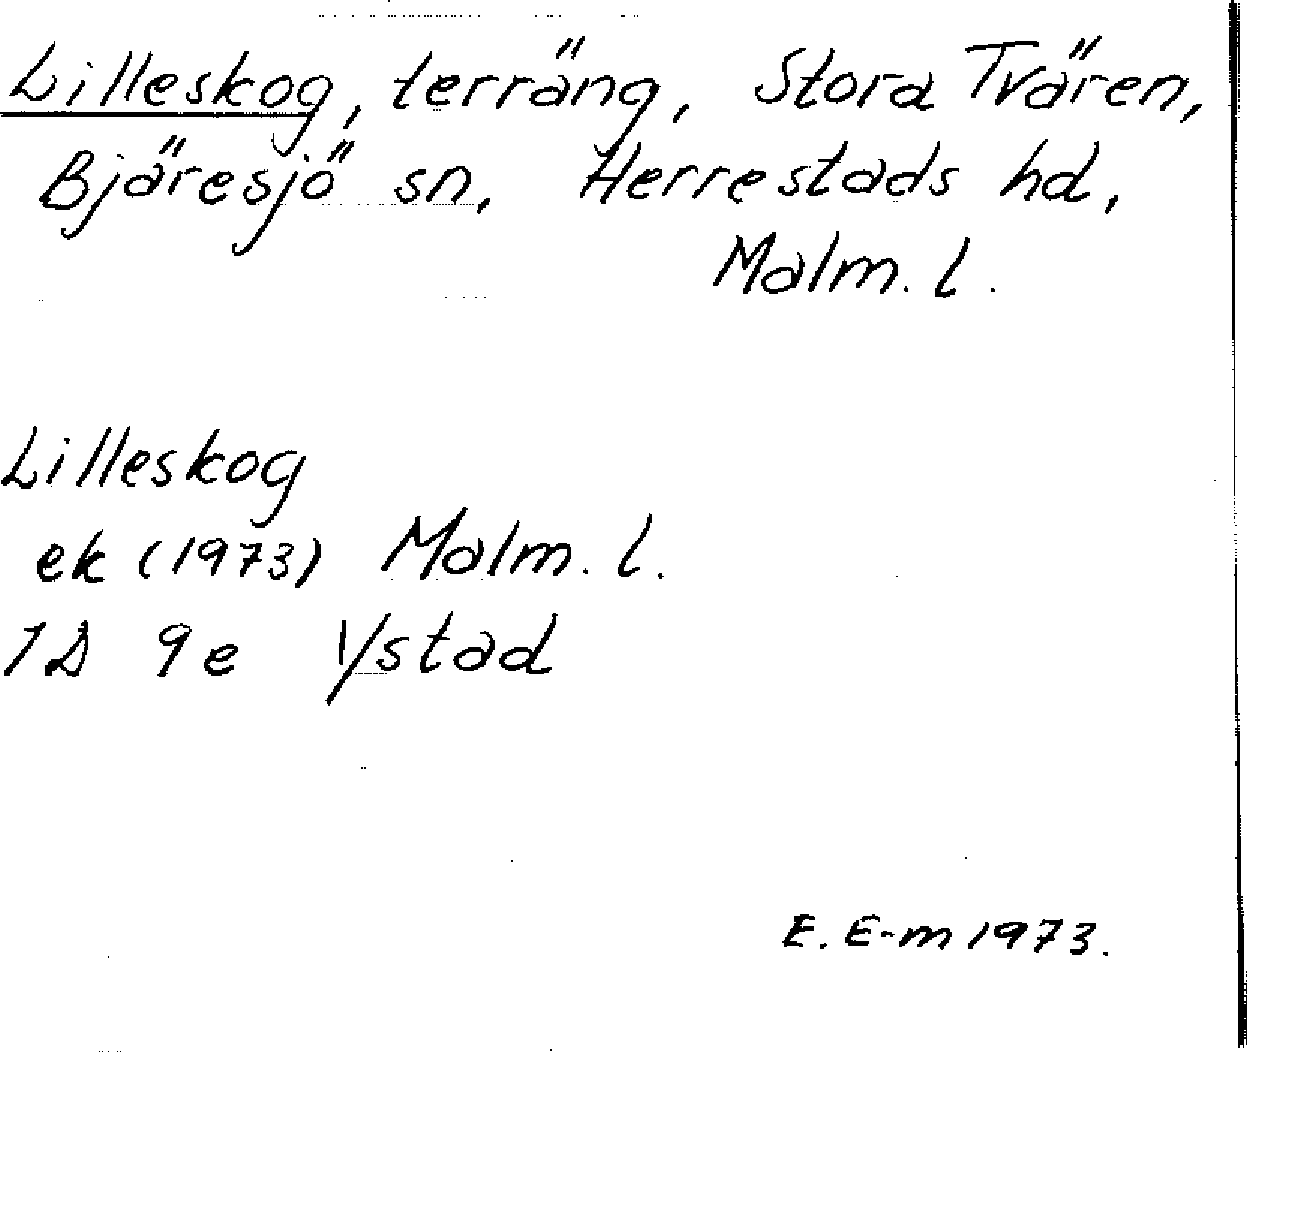 Lilleskog, terräng, Stora Tvären,
Bjäresjö sn, Herrestads hd,
Malm. l.
Lilleskog
ek (1973) Malm. l.
1D 9e Ystad
E. E-m 1973.